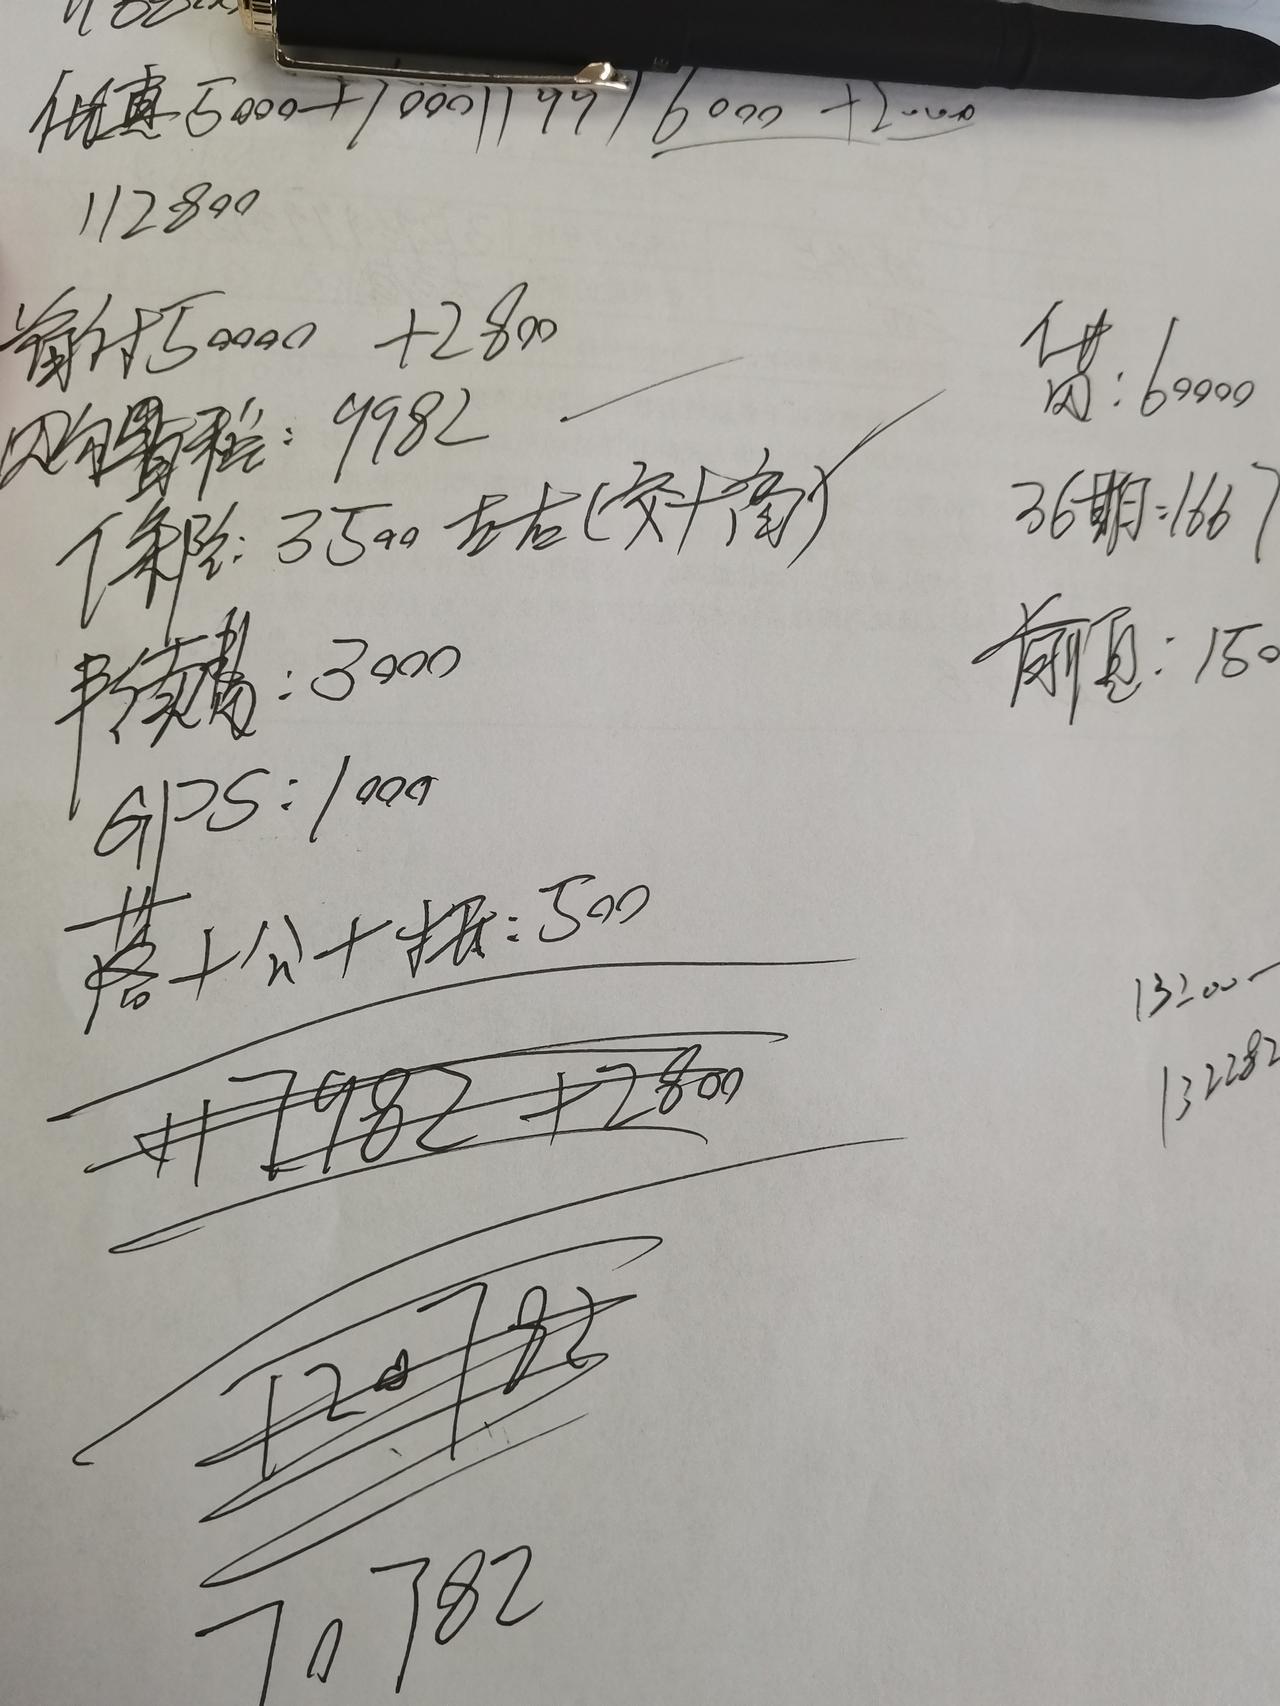 优惠5000+1000 1199 6000 +2000
112800
首付50000 +2800
购置税:9982
保险:3500左右(交+商)
手续费:3000
GPS:1000
落+公+抵:500
17982+2800
20782
70782
贷:60000
36期:1667
前
13200
132282